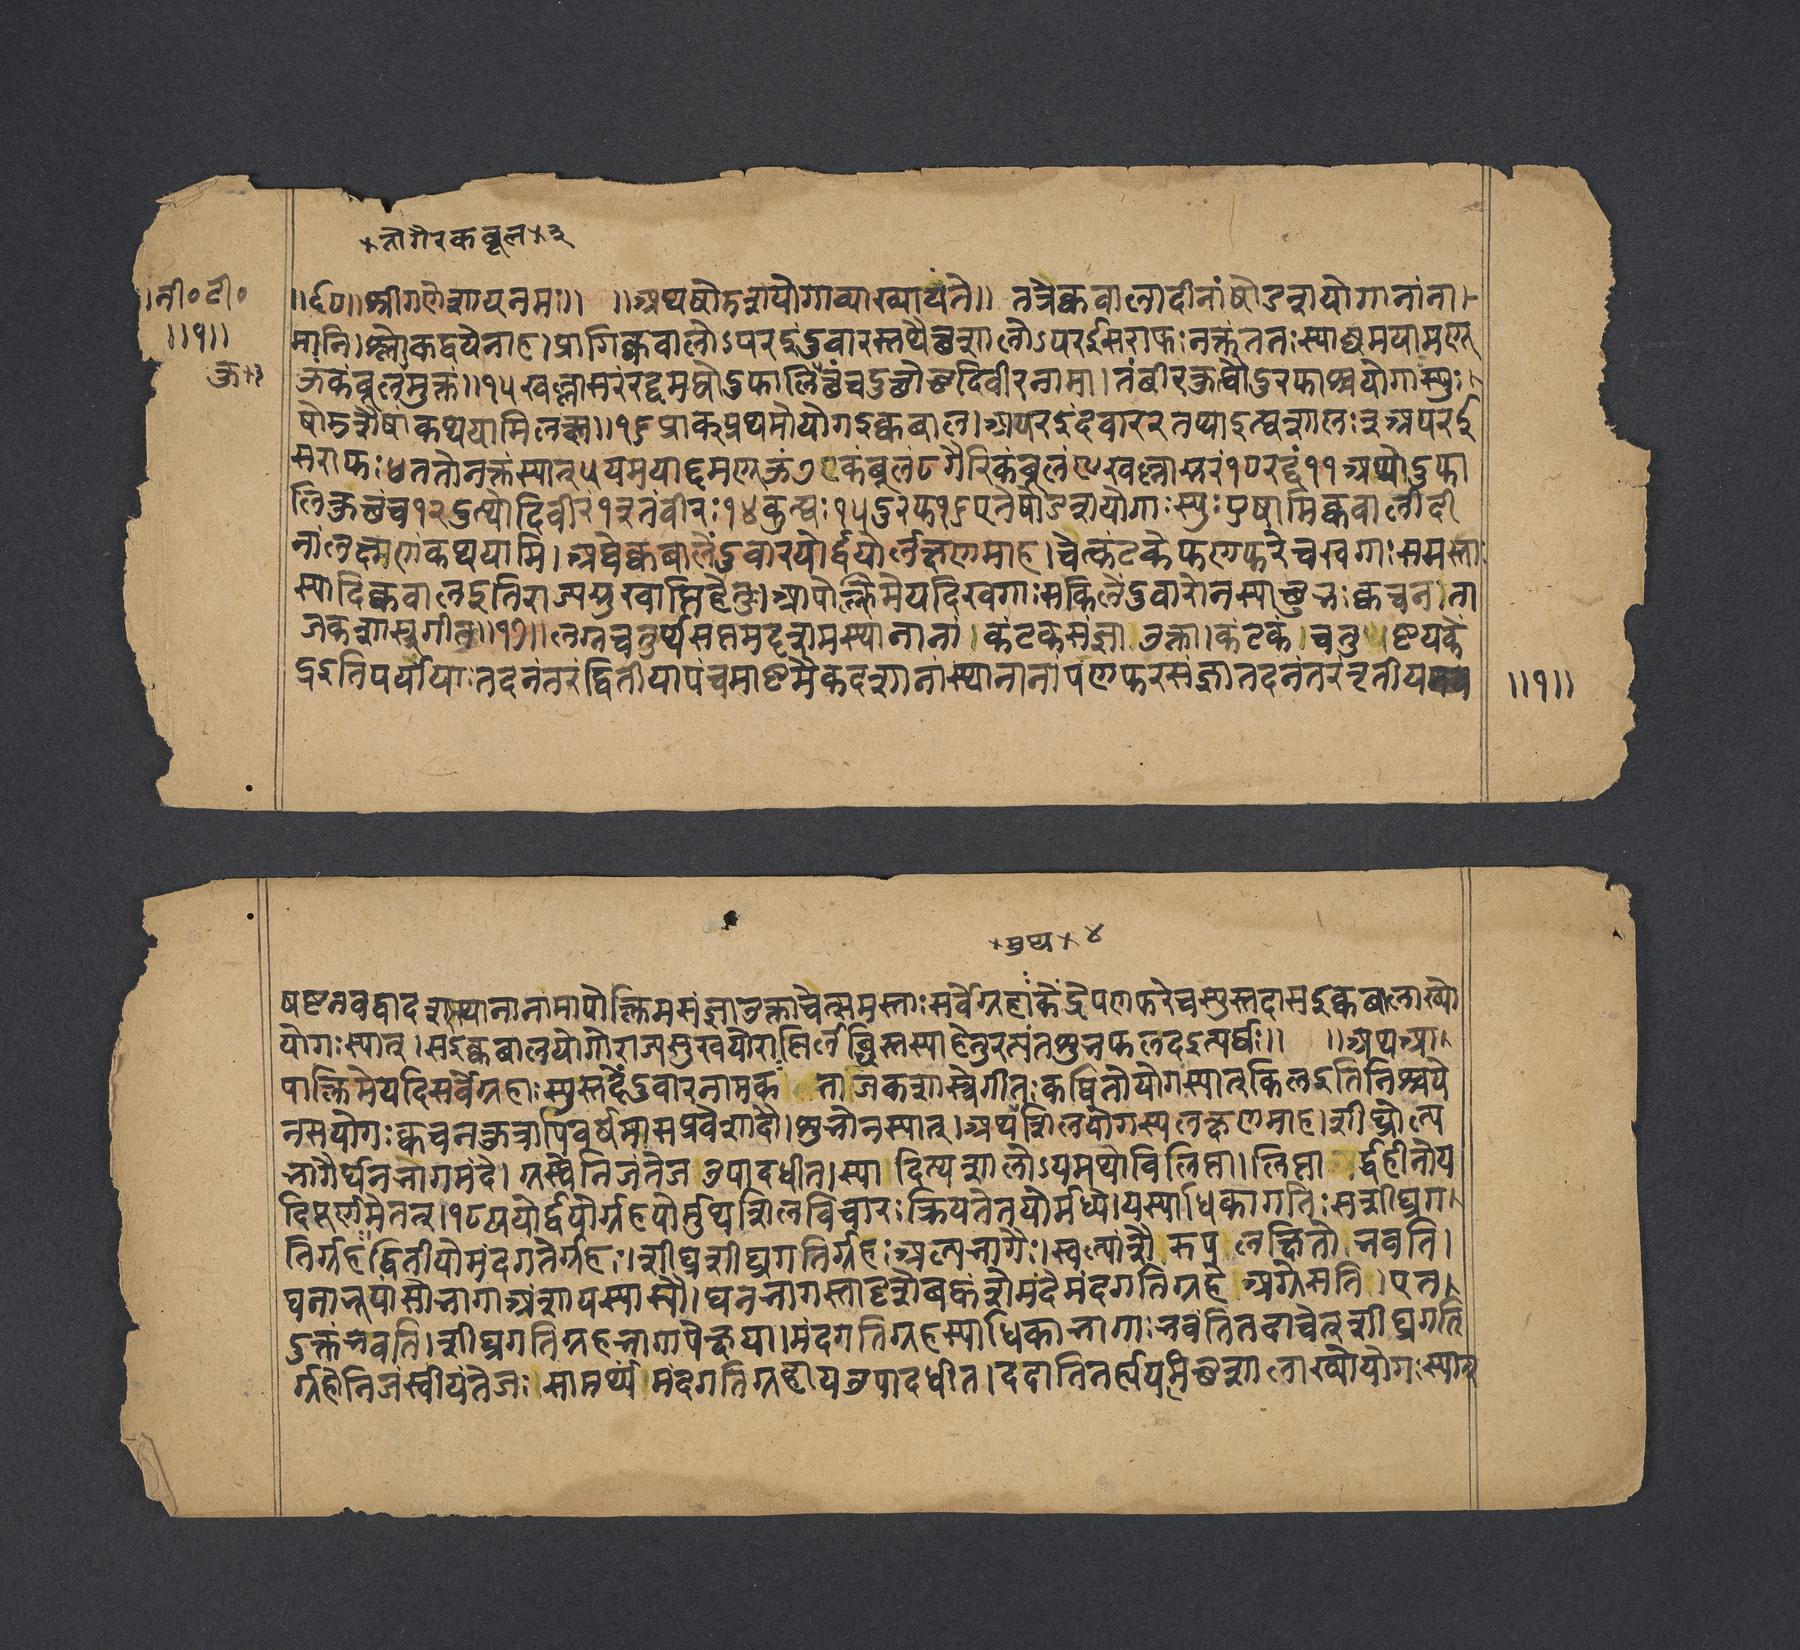 ×तोगैरकबूल×३
।नी०टी०
॥१॥
॥६०॥श्रीगणेशायनमः॥ ॥अथषोडशयोगाव्याख्यायंते॥ तत्रेक्कवालादीनांषोडशयोगानांना
मानि।श्लोकद्वयेनाह।प्रागिक्कवालोऽपरइंदुवारस्तथेत्थशालोऽपरईसराफः।नक्तंततःस्याद्यमयामणऊ
ऊकंबूलमुक्तं॥१५खल्लासरंरद्दमथोदुफालिकुत्थंचदुत्थोत्थदिवीरनामा।तंबीरकुत्थोदुरफाश्चयोगास्युः
षोडशैषांकथयामिलक्ष्म॥१६प्राक्प्रथमोयोगइक्कबाल।अपरइंदवार२तथाइत्थशालः३अपरई
सराफः४ततोनक्तंस्यात्५यमयाद्दमणऊं७कंबूल८गैरिकंबूलं९खल्लासरं१०रद्दं११अथोदुफा
लिकुत्थंच१२दुत्थोदिवीरं१३तंबीरः१४कुत्थः१५दुरफ१६एतेषोडशयोगाःस्युःएषामिक्कवालादी
नांलक्ष्मणंकथयामि।अथेक्कबालेंदुवारयोर्द्वयोर्लक्षणमाह।चेत्कंटकेफणफरेचखगाःसमस्ताः
स्यादिक्कवालइतिराज्यसुखाप्तिहेतुः।आपोक्लिमेयदिखगाःसकिलेंदुवारोनस्याच्छुभःक्वचन।ता
जकशास्त्रगीतः॥१७॥लग्नचतुर्थसप्तमदशमस्थानानां कंटकसंज्ञा उक्ता।कंटकं चतुष्टयकें
द्रइतिपर्यायाः।तदनंतरंद्वितीयापंचमाष्टमैकदशानांस्थानानांपणफरसंज्ञातदनंतरंतृतीय
॥१॥
×मुथ×४
षष्टनवद्वादशस्थानानामापोक्लिमसंज्ञाउक्ताचेत्समस्ताःसर्वेग्रहांकेंद्रेपणफरेचस्युस्तदासइक्कबालाख्यो
योगःस्यात्।सइक्कबालयोगोराज्यसुखयोराप्तिर्लब्धिस्तस्याहेतुरत्यंतशुभफलदइत्यर्थः॥ ॥अथआ
पोक्लिमेयदिसर्वेग्रहाःस्युस्तदेंदुवारनामकं ताजकशास्त्रेगीतःकथितोयोगस्यात्किलइतिनिश्चये
नसयोगःक्वचनकुत्रापिवर्षमासप्रवेशादौ।शुभोनस्यात्।अथेत्थशिलयोगस्यलक्षणमाह।शीघ्रोल्प
भागैर्घनभागमंदे।ग्रस्थेनिजंतेज उपादधीत।स्या दित्थशालोऽयमथोविलिप्ता।लिप्ता र्द्धहीनोय
दिपूर्णमेतत्।१८ययोर्द्वयोर्ग्रहयोर्मुथशिलविचारःक्रियतेतयोर्मध्ये।यस्याधिकागतिःसशीघ्रग
तिर्ग्रहःद्वितीयोमंदगतेर्ग्रहः।शीघ्रशीघ्रगतिर्ग्रहःअल्पभागैः।स्वल्पांशैरुपलक्षितोभवति।
घनाभूयांसोभागाअंशायस्यासौ।घनभागस्तादृशेबहुंशेमंदेमंदगतिग्रहे अग्रेसति।एत
दुक्तंभवति।शीघ्रगतिग्रहभागापेक्षया।मंदगतिग्रहस्याधिकाभागाःभवंतितदाचेत्शीघ्रगति
र्ग्रहोनिजंस्वीयंतेजः सामर्थ्यं मंदगतिग्रहाय उपादधीत।ददातितर्ह्ययमित्थशालाख्योयोगःस्यात्